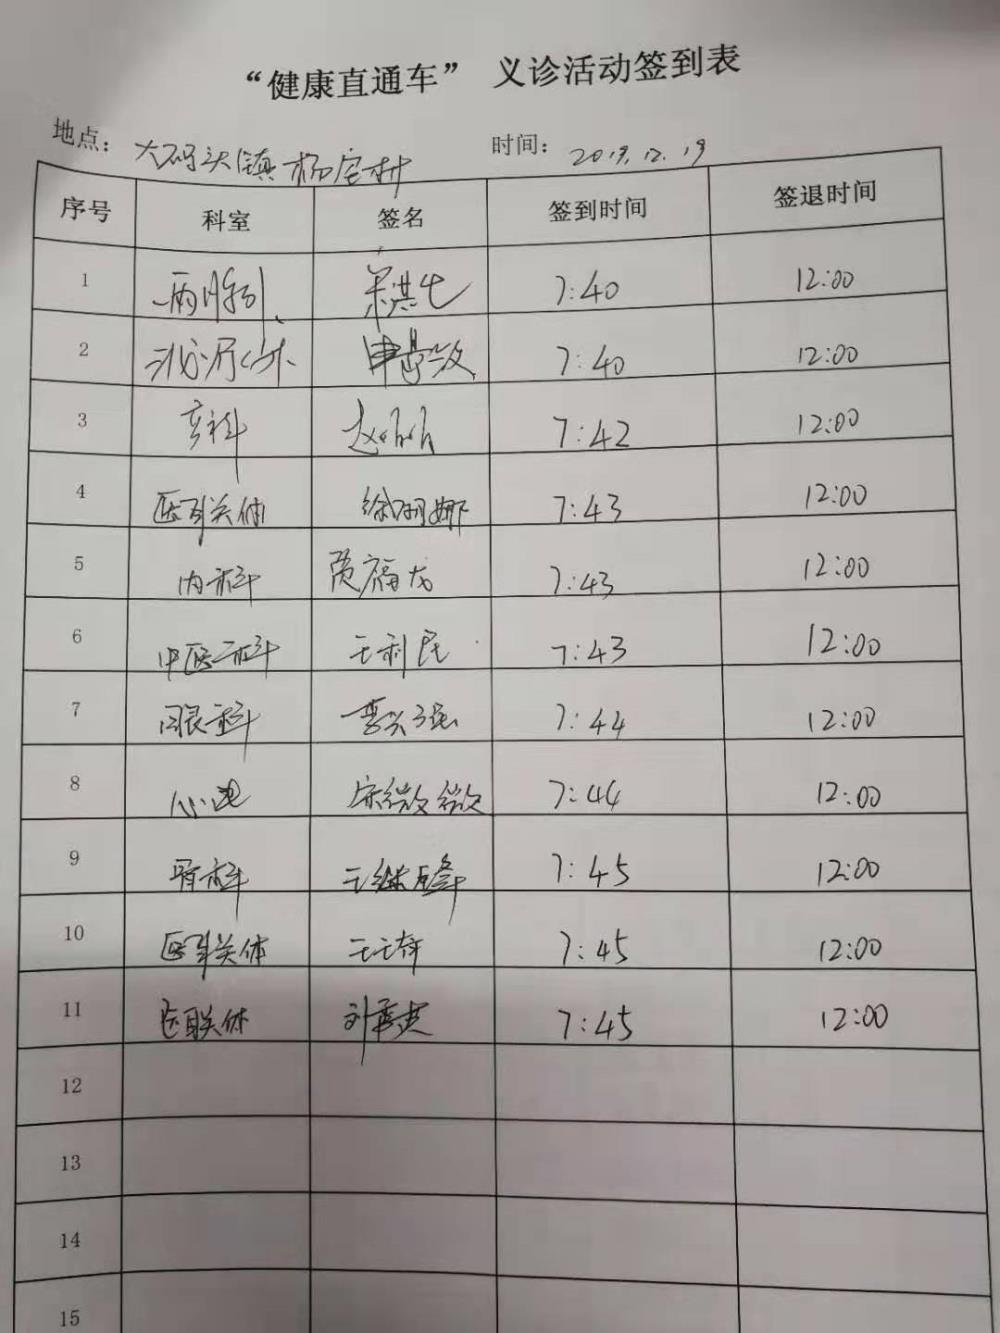 “健康直通车” 义诊活动签到表
地点： 大码头镇杨官村 时间： 2019.12.19
序号 科室 签名 签到时间 签退时间
1 7:40 12:00
2 泌尿外 7:40 12:00
3 7:42 12:00
4 医联体 徐珊娜 7:43 12:00
5 内科 福龙 7:43 12:00
6 中医科 王利民 7:43 12:00
7 眼科 李兴强 7:44 12:00
8 心电 宋微微 7:44 12:00
9 骨科 王继峰 7:45 12:00
10 医联体 王 7:45 12:00
11 医联体 刘 7:45 12:00
12
13
14
15